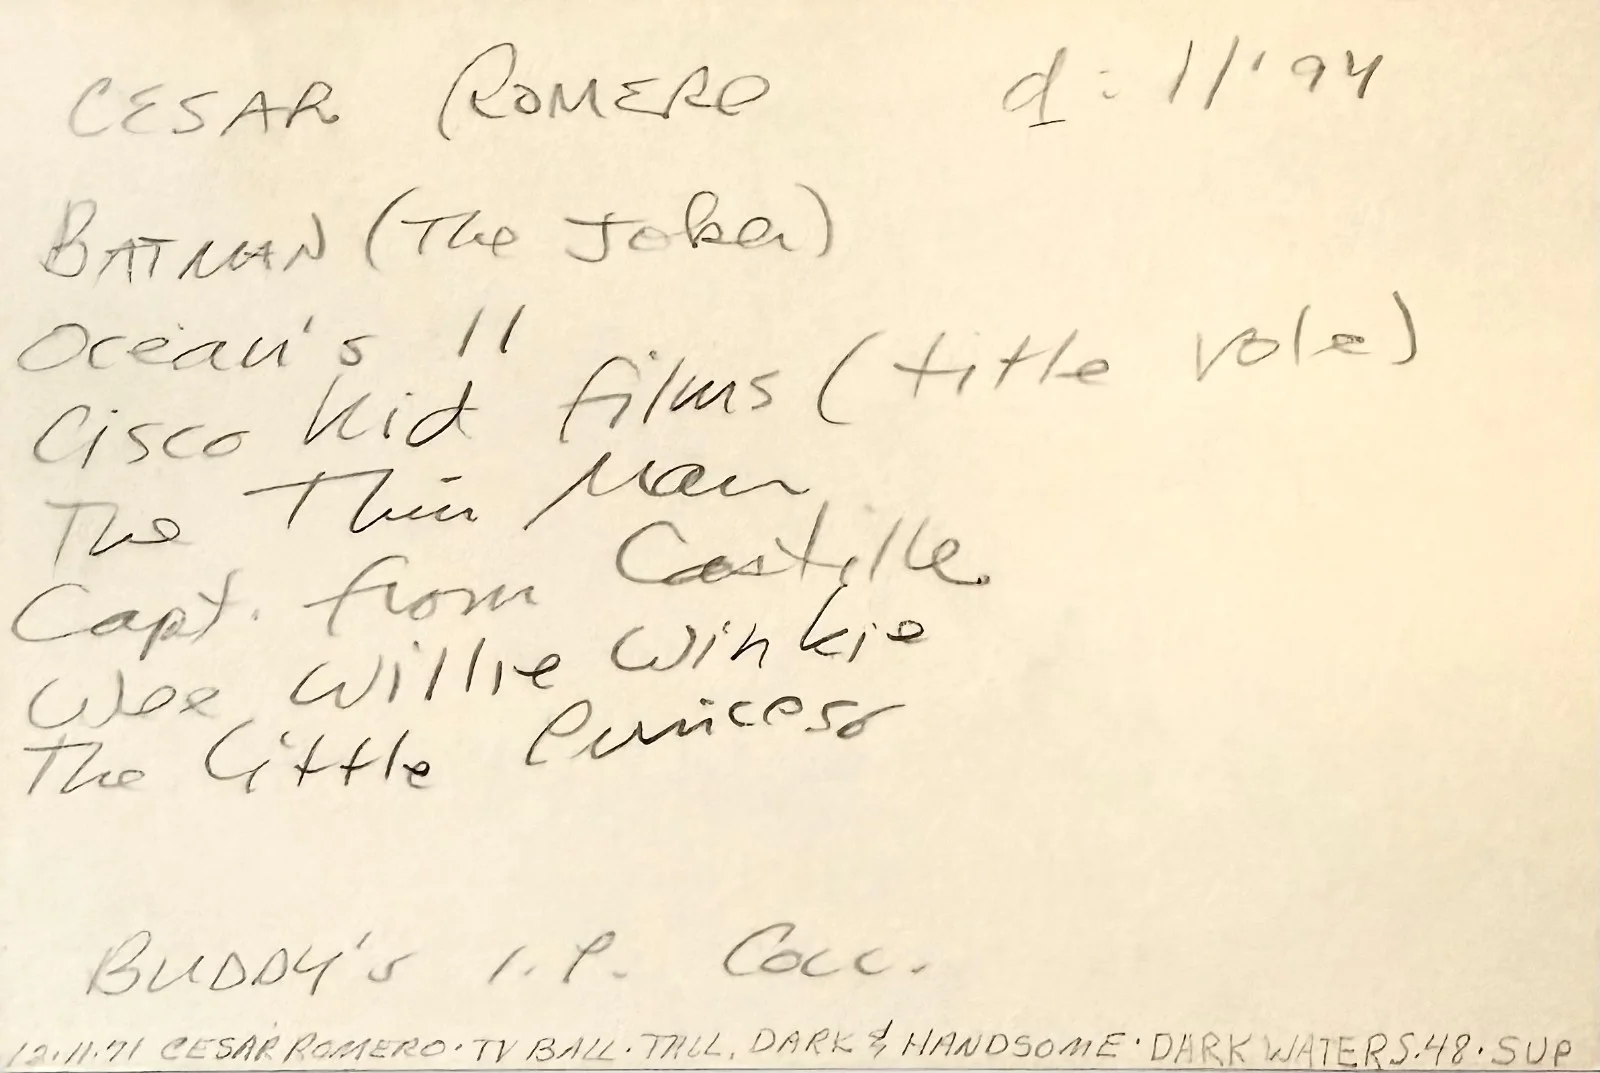 CESAR ROMERO d: 11/'94
BATMAN (The Joker)
Ocean's 11
Cisco Kid films (title role)
The Thin Man
Capt. from Castille
Wee Willie Winkie
The Little Princess
BUDDY's I.P. Coll.
12.11.71 CESAR ROMERO·TV BALL·TALL, DARK & HANDSOME·DARK WATERS.48·SUP